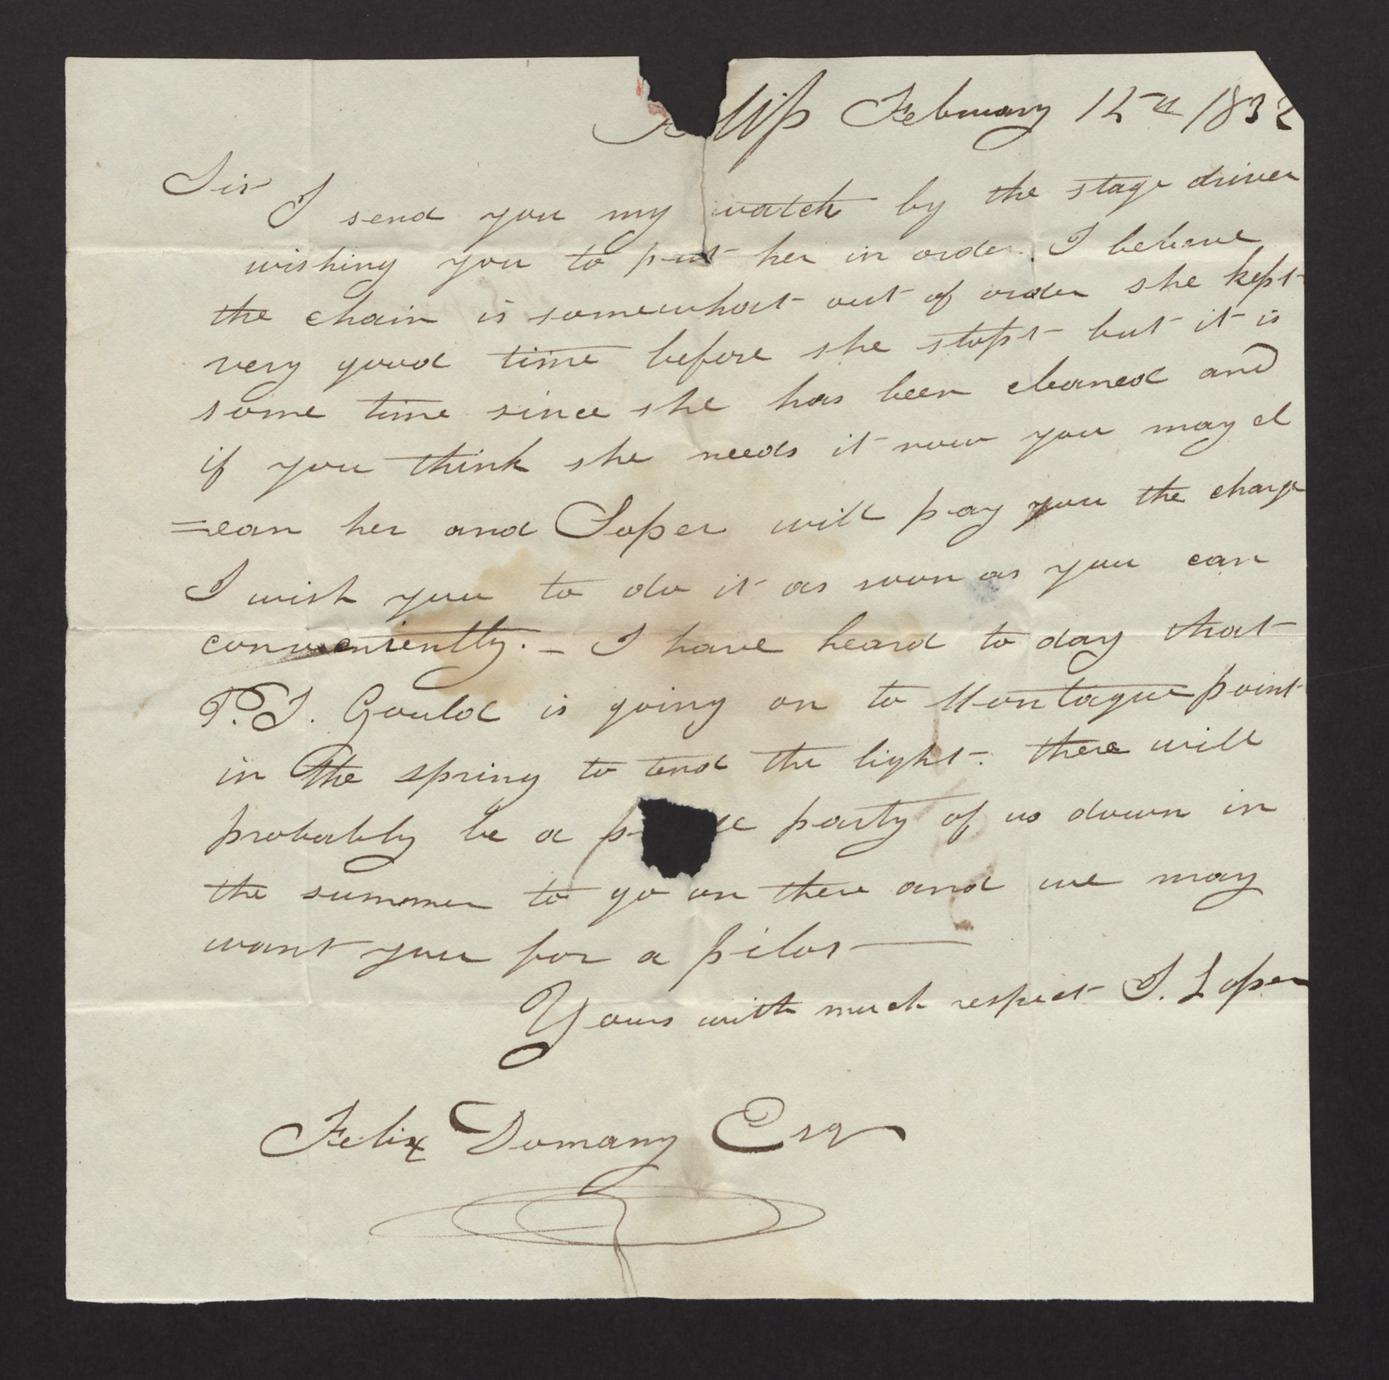 Islip February 12th 1832
Sir
I send you my watch by the stage driver
wishing you to put her in order. I believe
the chain is somewhat out of order she kept
very good time before she stopt but it is
some time since she has been cleaned and
if you think she needs it now you may cl
=ean her and Soper will pay you the charge
I wish you to do it as soon as you can
conveniently. – I have heard to day that
P. J. Gould is going on to Montague point
in the spring to tend the light. there will
probably be a party of us down in
the summer to go on there and we may
want you for a pilot
Yours with much respect S.
Felix Domany Esqr